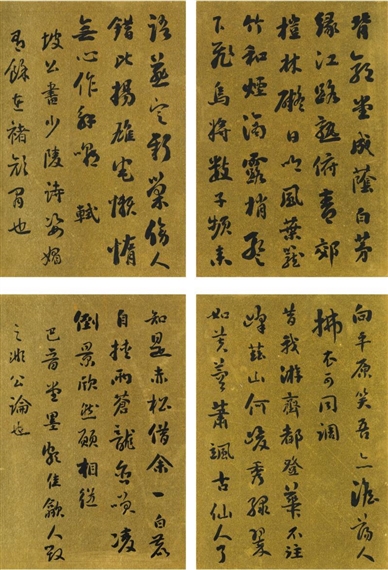 背郭堂成蔭白茅
緣江路熟俯青郊
榿林礙日吟風葉籠
竹和煙滴露梢暫
下飛烏將數子頻來
語燕定新巢傍人
錯比揚雄宅懶惰
無心作解嘲 軾
坡公書少陵詩姿媚
有餘在褚顏間也
向平原笑吾亦澹蕩人
拂衣可同調
昔我游齊都登華不注
峰茲山何峻秀綠翠
如芙蓉蕭颯古仙人了
知是赤松借余一白鹿
自挾兩蒼龍含笑凌
倒景欣然願相從
堂墨佳歙人
之公論也